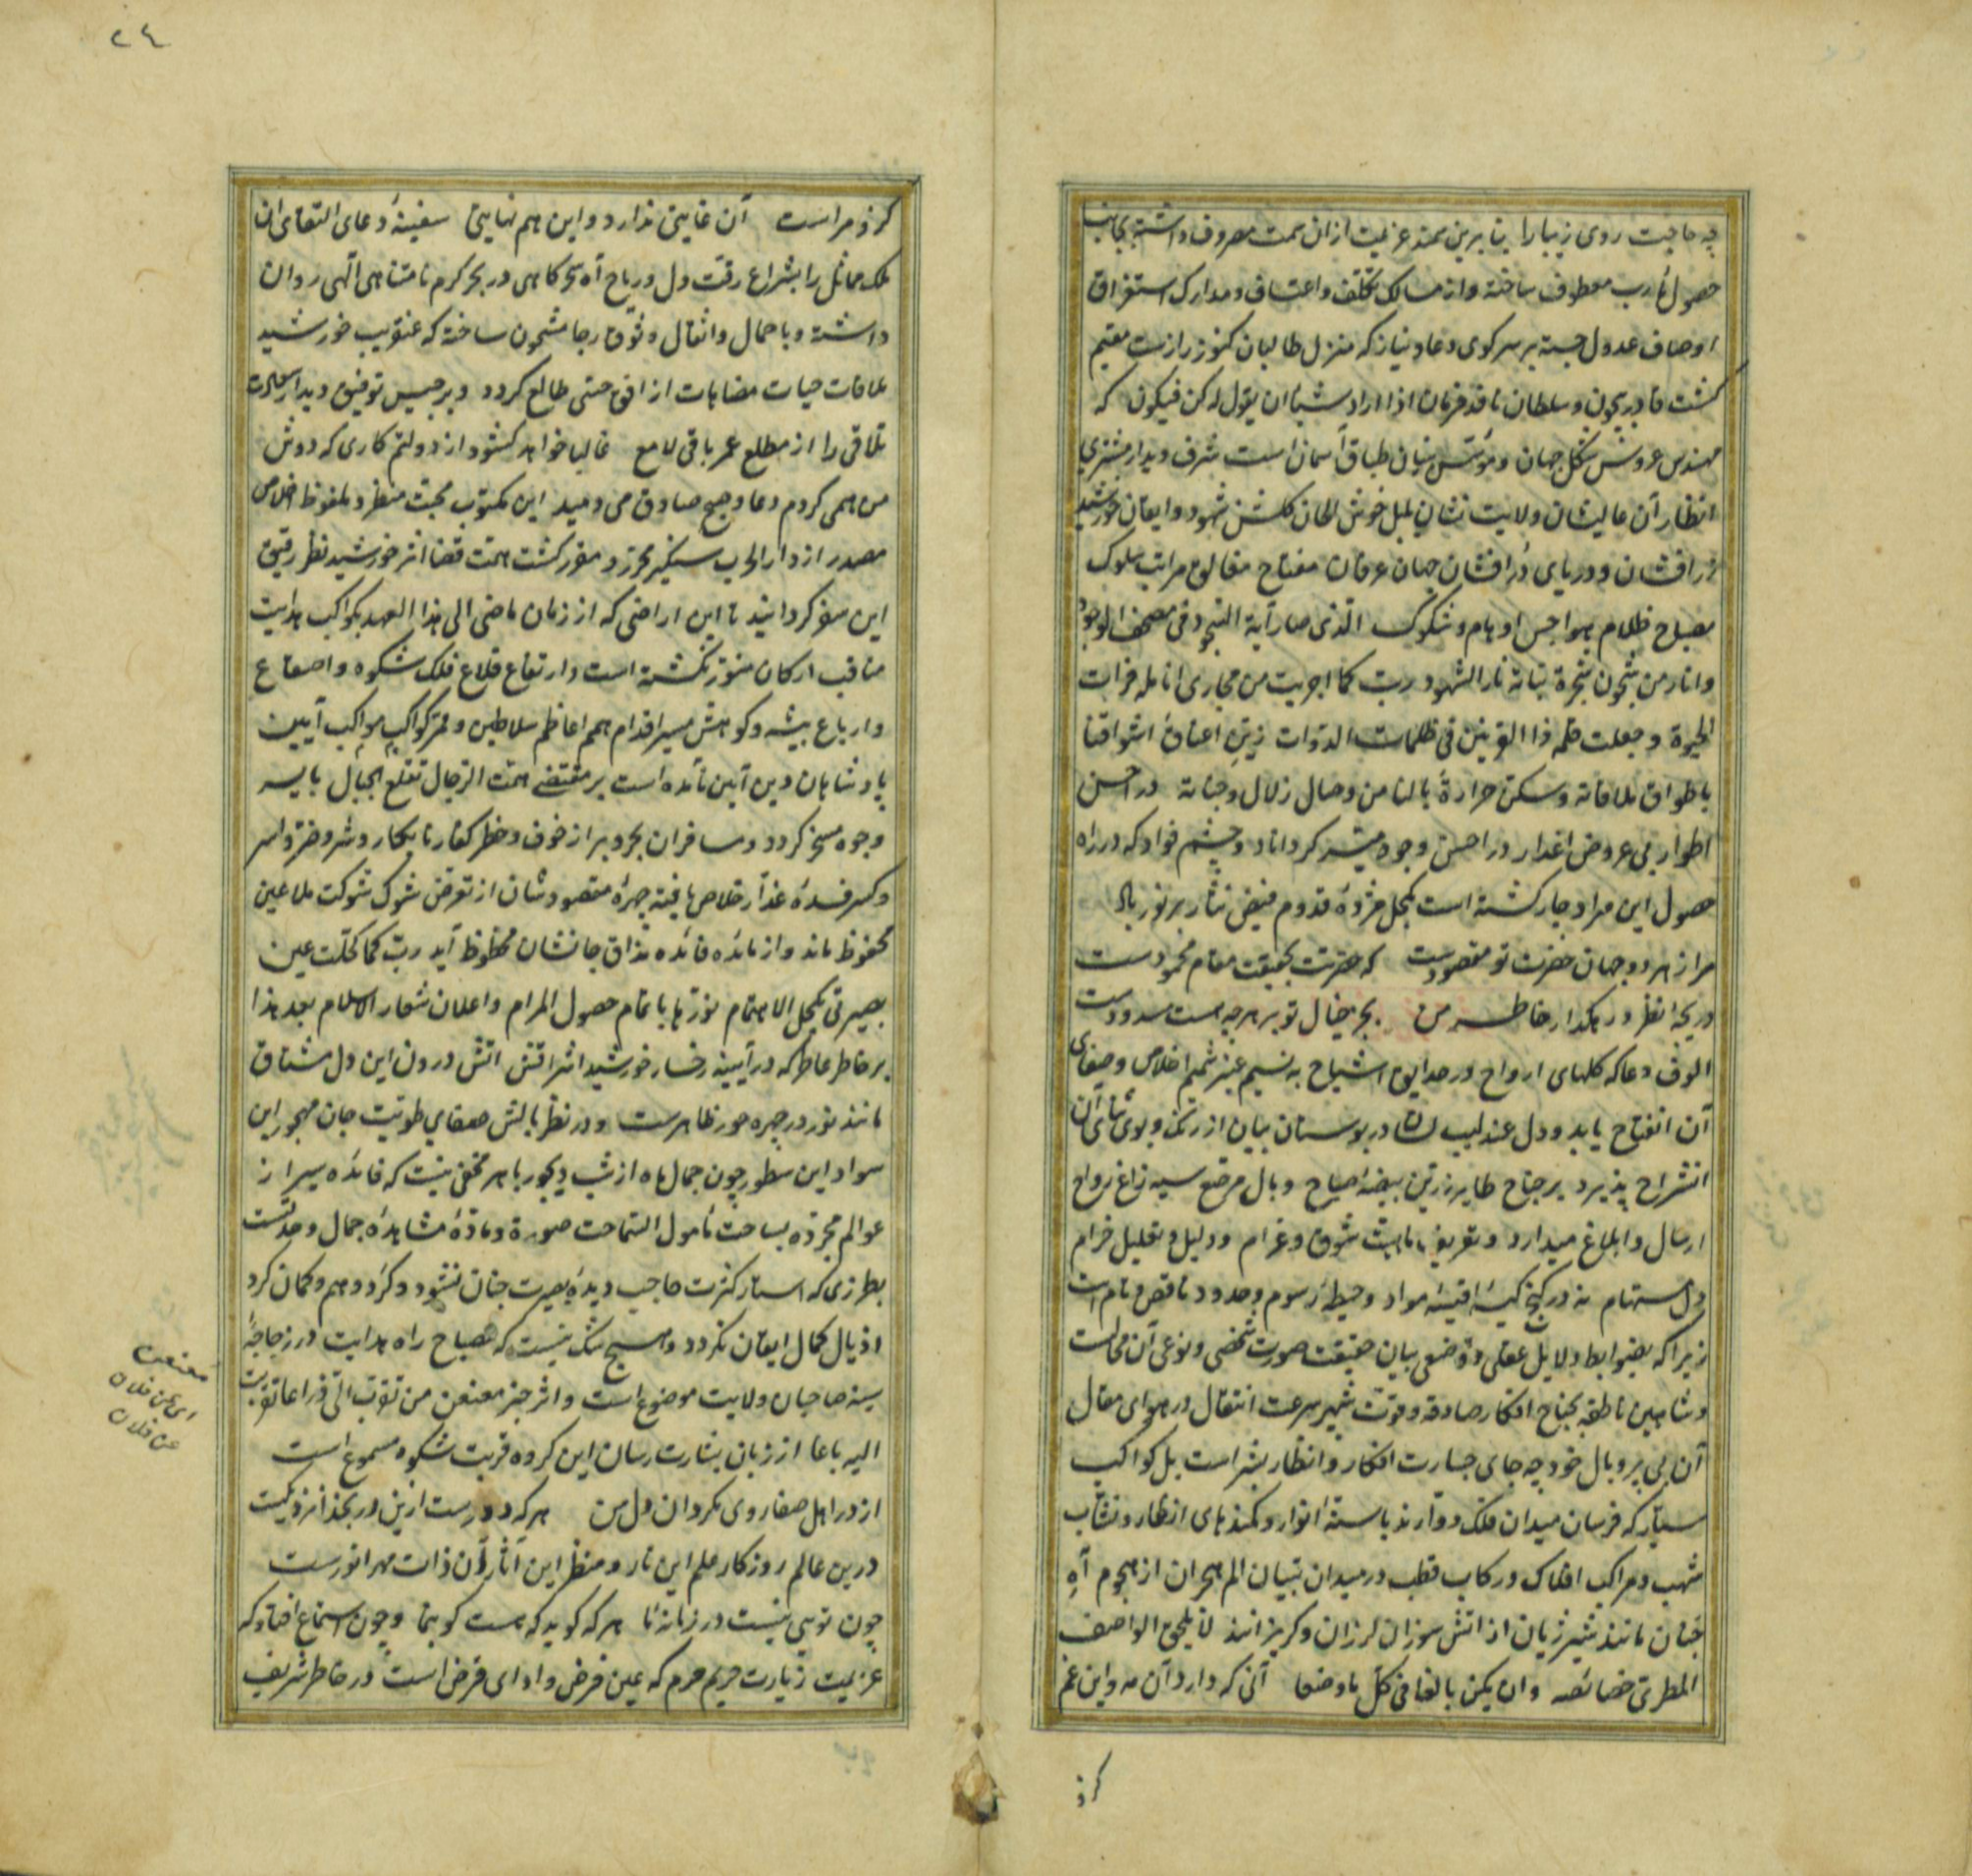 چه حاجت روی زیبا را بنا برین سمند عزیمت ازان سمت مصروف داشته بجانب
حصول مآرب معطوف ساخته و از مسالک تکلف و اعتساف و مدارک استغراق
اوصاف عدول جسته بر سر کوی دعا و نیاز که منزل طالبان کنوز رازست مقیم
گشت قادر بیچون و سلطان نافذ فرمان اذا اراد شیئا ان یقول له کن فیکون که
مهندس عروش شکل جهان و مؤسس بنیان طباق آسمان است شرف دیدار مشتری
انظار آن عالیشان ولایت نشان بلبل خوش الحان گلشن شهود و ایقان خورشید
زرافشان و دریای درافشان جهان عرفان مفتاح مغالق مراتب سلوک
مصباح ظلام هواجس اوهام و شکوک الذی صار آیة التهجد فی مصحف الوجود
و انار من شجون شجرة بنانه نار الشهود رب کما اجریت من مجاری انامله فرات
الحیوة و جعلت قلمه ذا القرنین فی ظلمات الدوات زین اعناق اشواقنا
باطواق ملاقاته و سکن حرارة بالنا من وصال زلال وجناته در احسن
اطوار بی عروض اغدار در احسن وجوه میسر گرداناد و چشم فواد که در راه
حصول این مراد چار گشته است بکحل مژده قدوم فیض نثار پرنور باد
مرا از هر دو جهان حضرت تو مقصودست که حضرتت بحقیقت مقام محمودست
دریچه نظر و رهگذار خاطر من بجز خیال تو بر هرچه هست مسدودست
الوف دعا که گلهای ارواح در حدایق اشباح به نسیم عنبر شمیم اخلاص و صفای
آن انفتاح یابد و دل عندلیب لسان در بوستان بیان از رنگ و بوی ثنای آن
انشراح پذیرد بر جناح طایر زرین بیضه اصباح و بال مرصع سیه زاغ رواح
ارسال و ابلاغ میدارد و تعریف ماهیت شوق و غرام و دلیل و تعلیل خرام
دل مستهام نه در گنج کیسه اقیسه مواد و حیطه رسوم و حدود ناقص و تام است
زیرا که بضوابط دلایل عقلی و وضعی بیان حقیقت صورت شخصی و نوعی آن محالست
و شاهین ناطقه بجناح افکار صادقه و قوت شهپر سرعت انتقال در هوای مقال
آن بی پر و بال خود چه جای جسارت افکار و انظار بشر است بل کواکب
سیار که فرسان میدان فلک دوارند با سنه انوار و کمندهای انظار و نشاب
شهب و مراکب افلاک و رکاب قطب در میدان تبیان الم هجران از هجوم آه
جنان مانند شیر ژیان از آتش سوزان لرزان و گریزانند لا یلحق الواصف
المطری خصائصه و ان یکن بالغا فی کل ما وصفا آنی که دارد آن مه و این غم
کزو
۲٤
کزو مراست آن غایتی ندارد و این هم نهایتی سفینه دعای التقای آن
ملک مماثل را بشراع رقت دل و ریاح آه سحرگاهی در بحر کرم نامتناهی الهی روان
داشته و باحمال و اثقال وثوق رجا مشحون ساخته که عنقریب خورشید
ملاقات حیات مضاهات از افق حسی طالع گردد و برجیس توفیق دیدار سعادت
تلاقی را از مطلع عمر باقی لامع غالبا خواهد گشود از دولتم کاری که دوش
من همی کردم دعا و صبح صادق می دمید این مکتوب محبت منظر و ملفوظ اخلاص
مصدر از دارالحرب سنگیر محرر و مقرر گشت همت قضا اثر خورشید نظر رفیق
این سفر گردانید تا این اراضی که از زمان ماضی الی هذا العهد بکواکب هدایت
مناقب ارکان منور نگشته است و ارتفاع قلاع فلک شکوه و اصقاع
و ارباع بیشه و کوهش مسیر اقدام همم اعاظم سلاطین و ممر کواکب مواکب آیین
پادشاهان دین آیین نامده است بر مقتضی همت الرجال تقلع الجبال بایسر
وجوه مسخر گردد و مسافران بحر و بر از خوف و خطر کفار نابکار و شر و ضر و اسر
و کسر فسده غدار خلاص یافته چهره مقصودشان از تعرض شوک شوکت ملاعین
محفوظ ماند و از مائده فائده مذاق جانشان محظوظ آید رب کما کحلت عین
بصیرتی بکحل الاهتمام نورها باتمام حصول المرام و اعلان شعار الاسلام بعد هذا
بر خاطر عاطر که در آیینه رخسار خورشید اشراقش آتش درون این دل مشتاق
مانند نور در چهره حور ظاهرست و در نظر بالش صفای طویت جان مهجور این
سواد این سطور چون جمال ماه از شب دیجور باهر مخفی نیست که فائده سیر از
عوالم مجرده بساحت نامول السماحت صورة و ماده مشاهده جمال وحدتست
بطرزی که استار کثرت حاجب دیده بصیرت جنان نشود و گرد وهم و گمان گرد
اذیال کمال ایقان نگردد و هیچ شک نیست که مصباح راه هدایت در زجاجه
سینه صاحبان ولایت موضوع است و اثر خبر معنعن من تقرب الی ذراعا تقربت
الیه باعا از زبان بشارت رسان این گروه قربت شکوه مسموع است
از در اهل صفا روی مگردان دل من هر که دورست ازین در بخدا نزدیکست
درین عالم روزگار علم این نار و منظر این آثار آن ذات مهر انورست
چون تویی نیست در زمانه ما هر که گوید که هست گو بنما و چون استماع افتاد که
عزیمت زیارت حریم حرم که عین فرض و ادای قرض است در خاطر شریف
معنعن
ای عن فلان
عن فلان